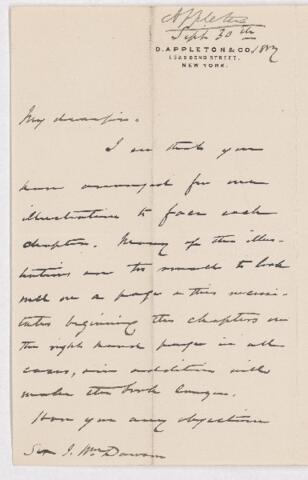 Appleton
Sept. 30th
D. APPLETON & CO. 1887
1, 3 & 5 BOND STREET,
NEW YORK.
My dear Sir.
I see that you
have arranged for one
illustration to face each
chapter. Many of the illus-
trations are too small to look
well on a page & this necessi-
tates beginning the chapters on
the right hand page in all
cases, in addition will
make the book longer.
Have you any objection
Sir J. Wm Dawson